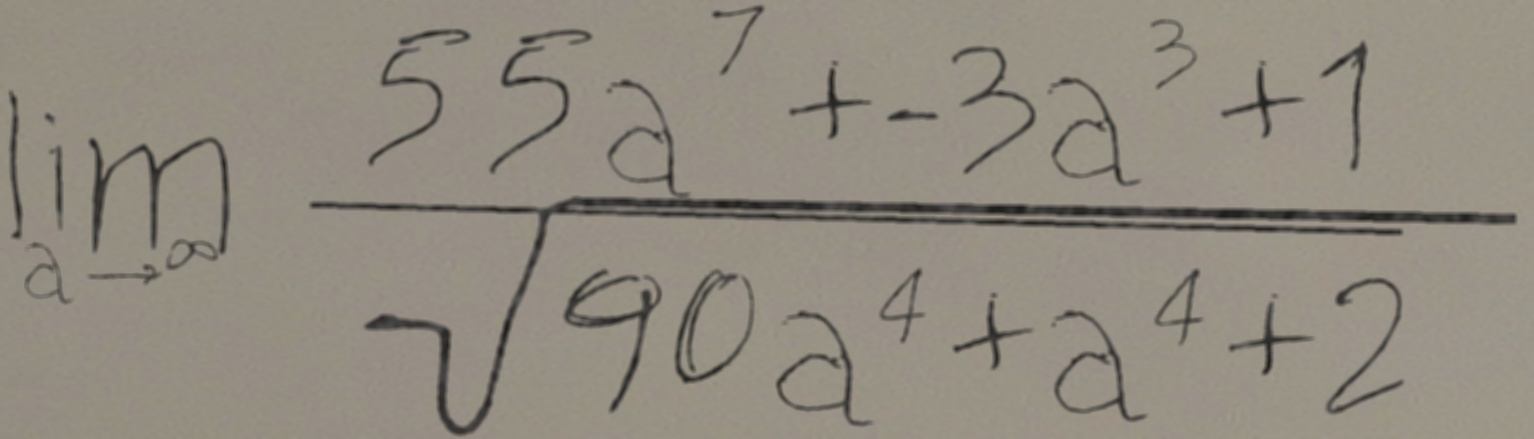 \lim_{a \to \infty} \frac{55a^7 + -3a^3 + 1}{\sqrt{90a^4 + a^4 + 2}}